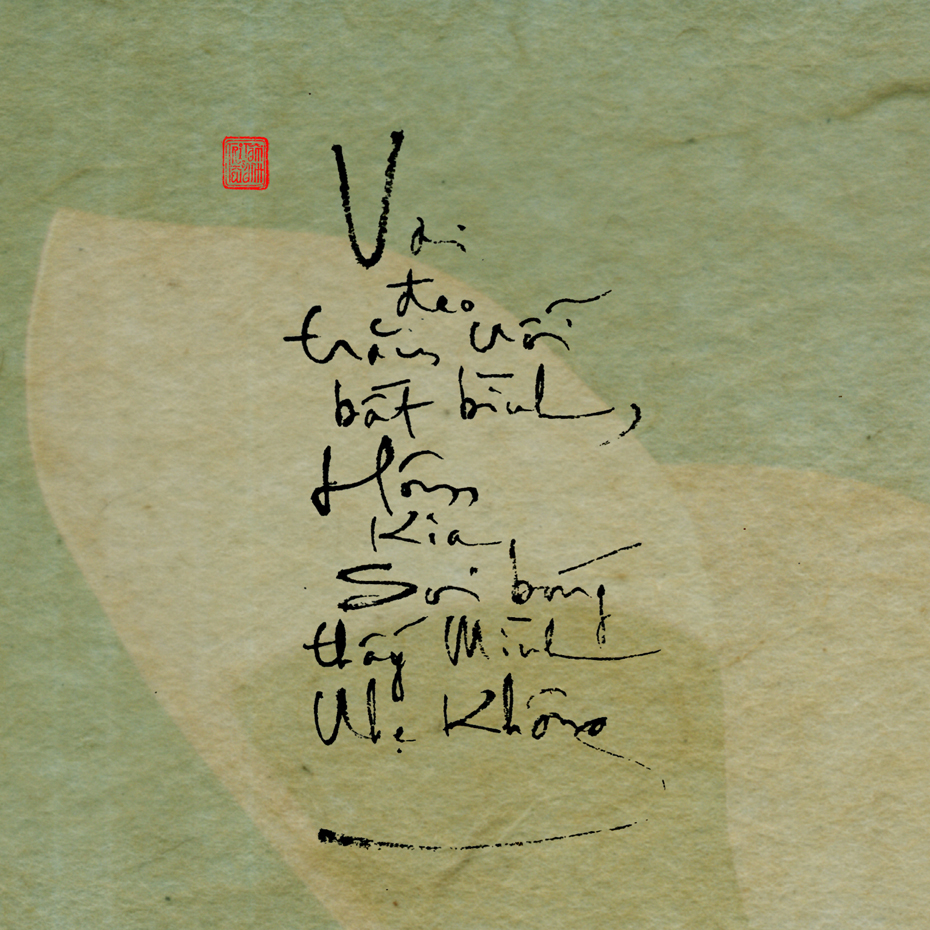 Vai
đeo
trăm nỗi
bất bình,
Hôm
Kia,
Soi bóng
thấy Mình
Nhẹ Không